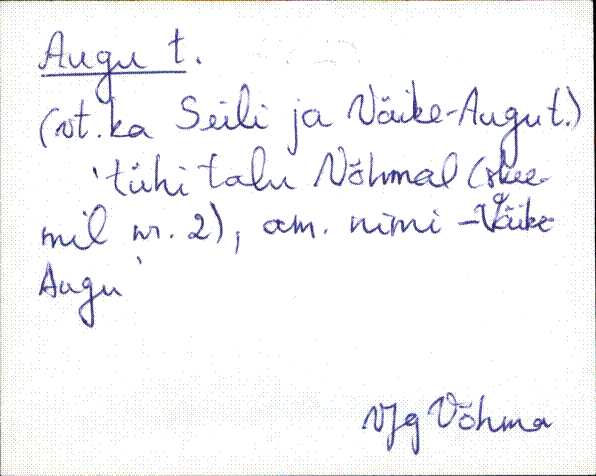 Augu t.
(vt. ka Seili ja Väike-Augu t.)
'tühi talu Võhmal (skee-
mil nr. 2), am. nimi - Väike
Augu'
VJg Võhma